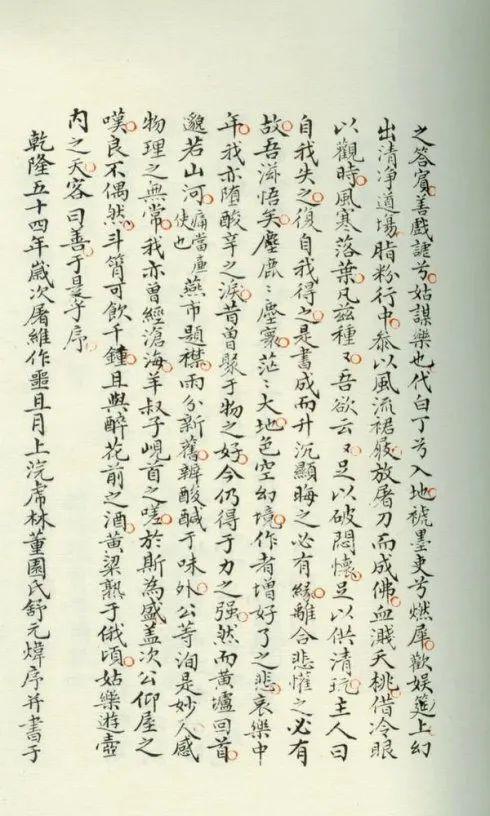 之答賓善戲謔兮姑謀樂也代白丁兮入地褫墨吏兮燃犀歡娛筵上幻
出清净道塲脂粉行中叅以風流裙屐放屠刀而成佛血濺夭桃借冷眼
以觀時風寒落葉凡兹種〻吾欲云〻足以破悶懷足以供清玩主人曰
自我失之復自我得之是書成而升沉顯晦之必有緣離合悲懽之必有
故吾滋悟矣塵鹿〻塵寰茫〻大地色空幻境作者增好了之悲哀樂中
年我亦墮酸辛之淚昔曾聚于物之好今仍得于力之强然而黃壚回首
邈若山河痛當廉使也燕市題襟雨分新舊辨酸醎于味外公等洵是妙人感
物理之無常我亦曾經滄海羊叔子峴首之嗟於斯為盛盖次公仰屋之
嘆良不偶然斗筲可飲千鍾且與醉花前之酒黃粱熟于俄頃姑樂遊壺
内之天客曰善于是乎序
乾隆五十四年歲次屠維作噩且月上浣虎林董園氏舒元煒序并書于